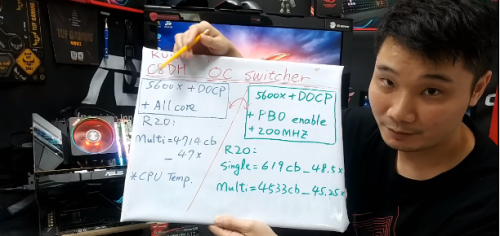 C8DH "OC switcher"
5600X + DOCP
+ All core
R20:
Multi = 4714 cb
- 47x
* CPU Temp.
5600X + DOCP
+ PBO enable
+ 200MHZ
R20:
Single = 619cb_48.5x
Multi = 4533cb_45.25x